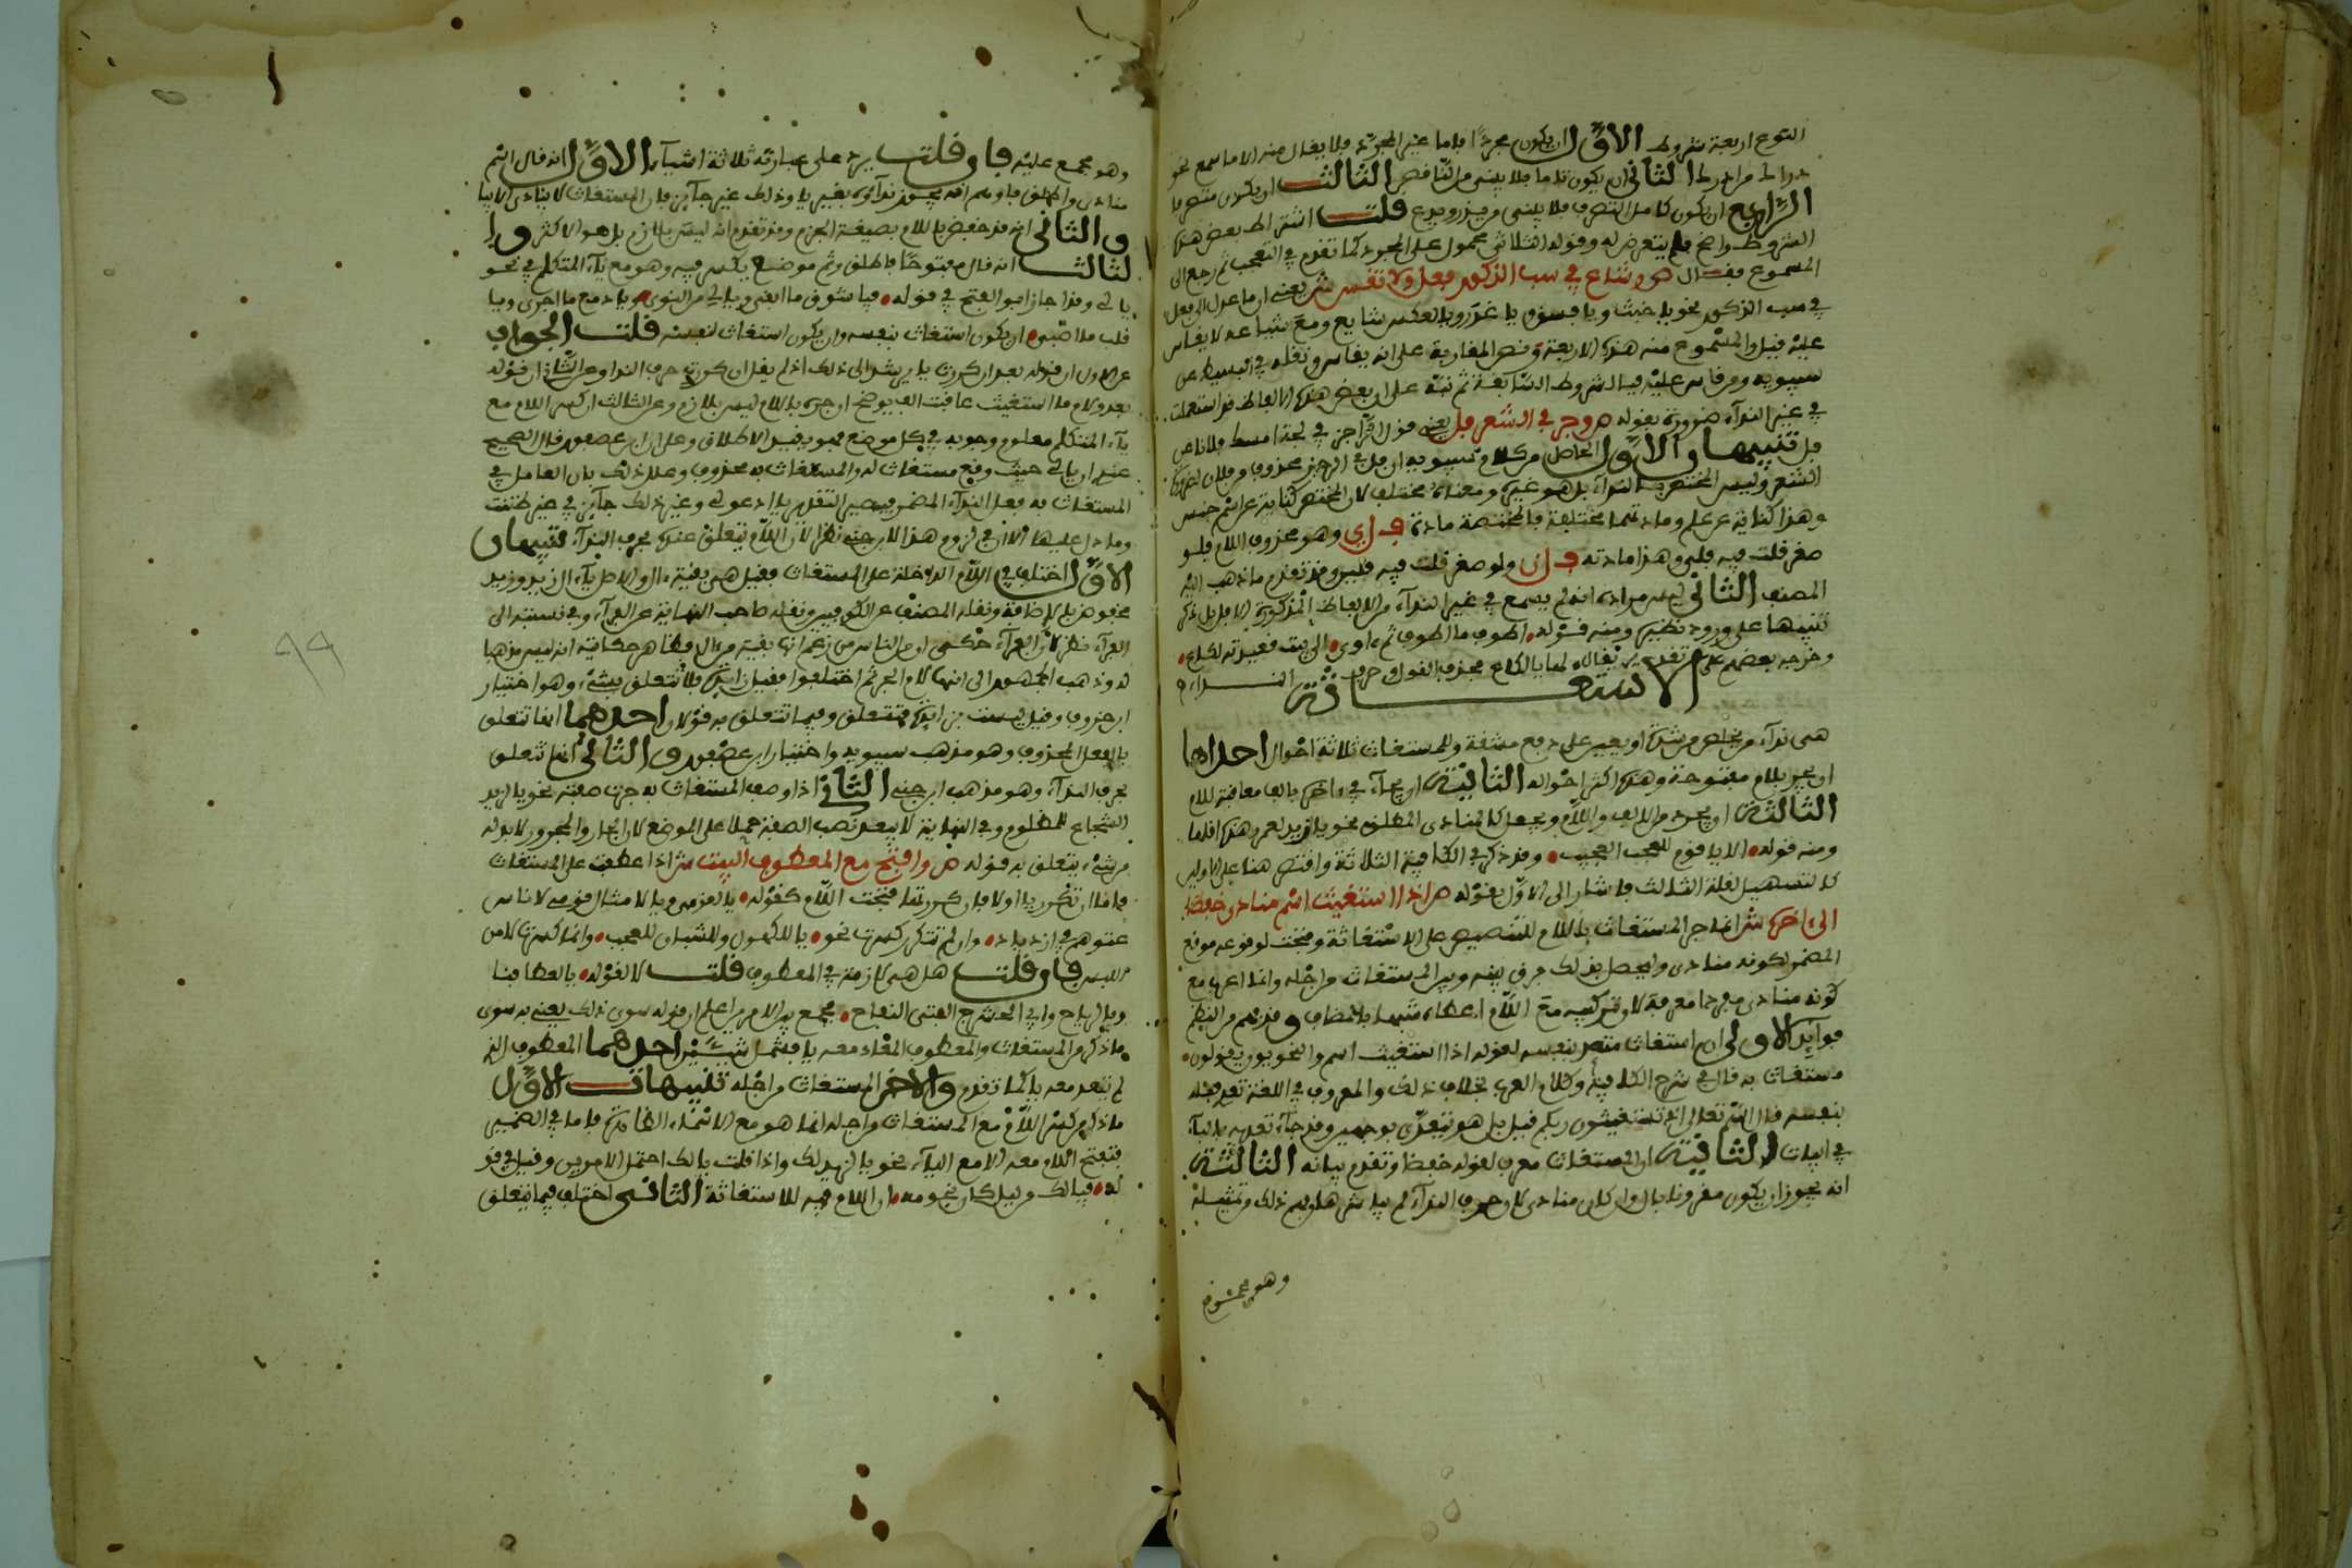 النوع اربعة شروط الاول ان يكون مجردا فاما غير المجرد فلا يقال منه الا ما سمع نحو
دراك من ادرك الثاني ان يكون تاما فلا يبنى من الناقص الثالث ان يكون متصرفا
الرابع ان يكون كامل التصرف فلا يبنى من يذر ويدع قلت اشتراط بعض هذه
الشروط واضح فلم يتعرض له وقوله الثلاثي محمول على المجرد كما تقدم في التعجب ثم رجع الى
المسموع فقال ص وشاع في سب الذكور فعل ولا تقس ش يعني ان ما عدل الى فعل
في سب الذكور نحو يا خبث ويا فسق يا غدر ويا لكع شايع ومع شياعه لا يقاس
عليه قيل والمسموع منه هذه الاربعة ونص المغاربة على انه يقاس ونقله في البسيط عن
سيبويه ومن قاس عليه فبالشروط السابقة ثم نبه على ان بعض هذه الالفاظ قد استعملت
في غير النداء ضرورة بقوله ص وجر في الشعر فل يعني قول الراجز في لجة امسك فلانا عن
فل تنبيهان الاول الحاصل من كلام سيبويه ان فل في الرجز محذوف من فلان لضرورة
الشعر وليس المختص بالنداء بل هو غيره ومعناهما مختلف لان المختص كناية عن اسم جنس
وهذا كناية عن علم ومادتهما مختلفة فالمختصة مادة ف ل ي وهو محذوف اللام فلو
صغر قلت فيه فلي وهذا مادته ف ل ن ولو صغر قلت فيه فلين وقد تقدم ما ذهب اليه
المصنف الثاني ليس مراده انه لم يسمع في غير النداء من الالفاظ المذكورة الا فل بل ذكر
تنبيها على ورود نظيره ومنه قوله اطوف ما اطوف ثم ءاوي الى بيت قعيدته لكاع
وخرجه بعضهم على تقدير يقال لها يا لكاع محذف القول وحرف النداء
الاستغاثة
هي نداء من يخلص من شدة او يعين على دفع مشقة وللمستغاث ثلاثة احوال احداها
ان يجر بلام مفتوحة وهذه اكثر احواله الثانية ان يجاء في ءاخره بالف معاقبة للام
الثالثة ان يجرد من الالف واللام ويجعل كالمنادى المطلق نحو يا زيد لعمرو وهذه اقلها
ومنه قوله الا يا قوم للعجب العجيب وقد ذكر في الكافية الثلاثة واقتصر هنا على الاولين
كالتسهيل لقلة الثالث فاشار الى الاول بقوله ص اذا استغيث اسم منادى خفضا
الى ءاخره ش انما جر المستغاث باللام للتنصيص على الاستغاثة وفتحت لوقوعه موقع
المضمر لكونه منادى وليحصل بذلك فرق بينه وبين المستغاث من اجله وانما اعرب مع
كونه منادى مفردا معرفة لان تركيبه مع اللام اعطاه شبها بالمضاف وقد فهم من النظم
فوايد الاولى ان استغاث متعد بنفسه لقوله اذا استغيث اسم والنحويون يقولون
مستغاث به قال في شرح الكافية وكلام العرب بخلاف ذلك والمعروف في اللغة تعدي فعله
بنفسه قال الله تعالى اذ تستغيثون ربكم قيل بل هو يتعدى بوجهين وقد جاء تعديه بالباء
في ابيات الثانية ان المستغاث معرب لقوله خفضا وتقدم بيانه الثالثة
انه يجوز ان يكون مقرونا بال وان كان منادى لان حرف النداء لم يباشرها وفهم ذلك من تمثيله
وهو مجمع
وهو مجمع عليه فان قلت يرد على عبارته ثلاثة اشياء الاول انه قال اسم
منادى واطلق فاوهم انه يجوز نداؤه بغير يا وذلك غير جائز فان المستغاث لا ينادى الا بيا
والثاني انه قد خفض باللام بصيغة الجزم وقد تقدم انه ليس بلازم بل هو الاكثر وا
لثالث انه قال مفتوحا فاطلق وثم موضع يكسر فيه وهو مع ياء المتكلم في نحو
يا لي وقد اجاز ابو الفتح في قوله فيا شوق ما ابقى ويا لي من النوى ويا دمع ما اجرى ويا
قلب ما اصبى ان يكون استغاث بنفسه وان يكون استغاث لنفسه قلت الجواب
عن الاول ان قوله بعد ان كررت يا يرشد الى ذلك اذ لم يقل ان كررت حرف الندا وعن الثاني ان قوله
بعد ولام ما استغيث عاقبت الف يوضح ان جره باللام ليس بلازم وعن الثالث ان كسر اللام مع
ياء المتكلم معلوم وجوبه في كل موضع فهو يقيد الاطلاق وعلى ان ابن عصفور قال الصحيح
عندي ان يا لي حيث وقع مستغاث له والمستغاث به محذوف وعلل ذلك بان العامل في
المستغاث به فعل النداء المضمر فيصير التقدير يا ادعو لي وغير ذلك جائز في غير ظننت
وما حمل عليها الا ان في لزوم هذا لابن جني نظرا لان اللام تتعلق عنده بحرف النداء تنبيهان
الاول اختلف في اللام الداخلة على المستغاث فقيل هي بقية ءال والاصل يا ءال زيد وزيد
مخفوض بالاضافة ونقله المصنف عن الكوفيين ونقله صاحب النهاية عن الفراء وفي نسبته الى
الفراء نظر لان الفراء حكى ان من الناس من زعم انها بقية من ءال فظاهر حكايته انه ليس مذهبا
له وذهب الجمهور الى انها لام الجر ثم اختلفوا فقيل زايدة فلا تتعلق بشيء وهو اختيار
ابن خروف وقيل ليست بزايدة فتتعلق وفيما تتعلق به قولان احدهما انها تتعلق
بالفعل المحذوف وهو مذهب سيبويه واختيار ابن عصفور والثاني انها تتعلق
بحرف النداء وهو مذهب ابن جني الثاني اذا وصف المستغاث به جرت صفته نحو يا لزيد
الشجاع للمظلوم وفي النهاية لا يبعد نصب الصفة حملا على الموضع لان الجار والمجرور لابد له
من شيء يتعلق به قوله ص وافتح مع المعطوف البيت ش اذا عطفت على المستغاث
فاما ان تكرر يا او لا فان كررتها فتحت اللام كقوله يا لقومي ويا لامثال قومي لاناس
عتوهم في ازدياد وان لم تتكرر كسرت نحو يا للكهول وللشبان للعجب وانما كسرت لامن
اللبس فان قلت هل هي لازمة في المعطوف قلت لا لقوله يا لعطافنا
ويا لرياح وابي الحشرج الفتى النفاح فجمع بين الامرين واعلم ان قوله سوى ذلك يعني به سوى
ما ذكر من المستغاث والمعطوف المعاد معه يا فشمل شيئين احدهما المعطوف الذي
لم تعد معه يا كما تقدم والاخر المستغاث من اجله تنبيهات الاول
ما ذكر من كسر اللام مع المستغاث من اجله انما هو مع الاسماء الظاهرة فاما في الضمير
فتفتح اللام معه الا مع الياء نحو يا لزيد لك واذا قلت يا لك احتمل الامرين وقيل في قو
له فيا لك من ليل كان نجومه ان اللام فيه للاستغاثة الثاني اختلف فيما يتعلق
٩٩